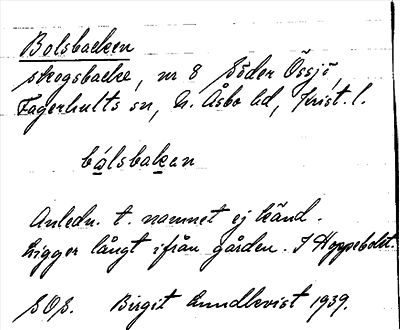 Bolsbacken
skogsbacke, nr 8 Söder Össjö,
Fagerhults sn, N. Åsbo hd, Krist. l.
bålsbakan
Anledn. t. namnet ej känd.
Ligger långt ifrån gården. I Hoppebolet.
SOS. Birgit Lundkvist 1939.